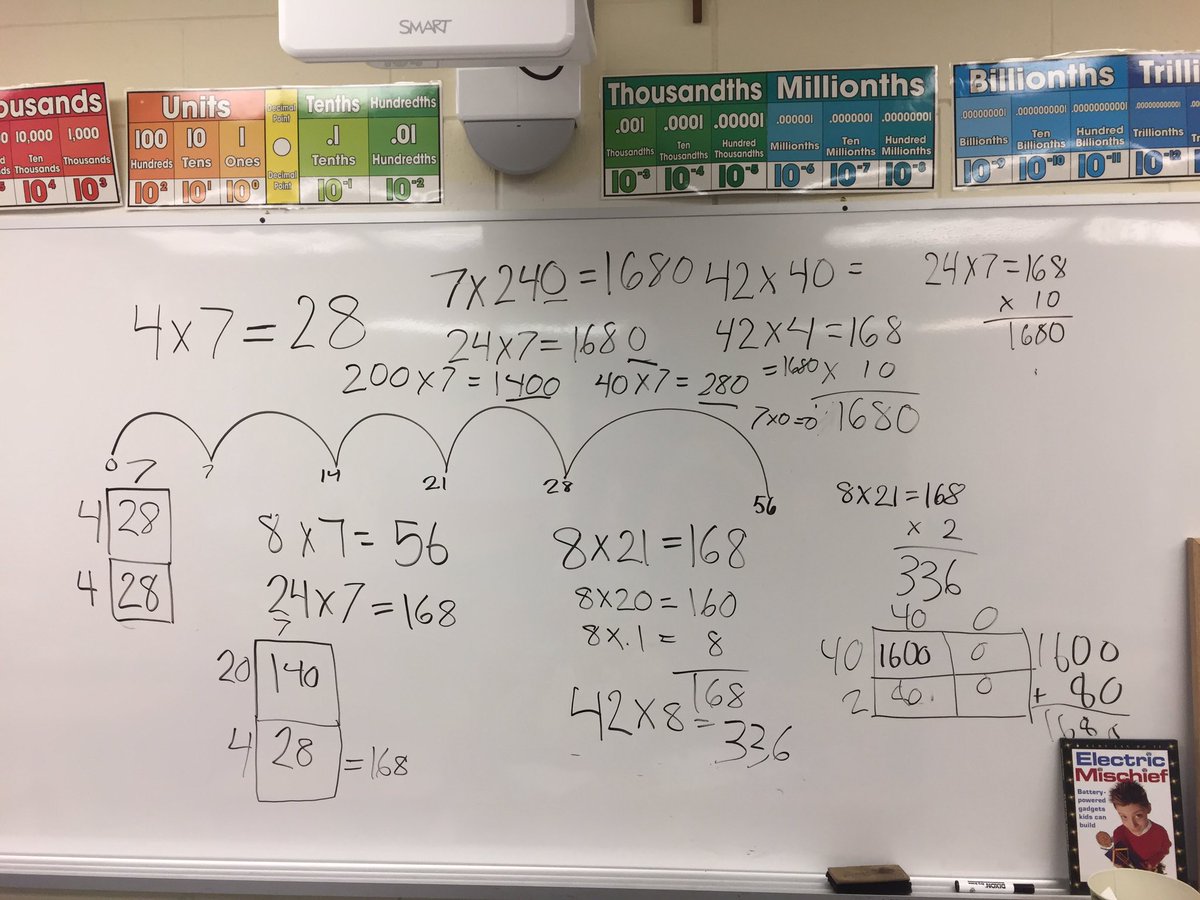 SMART
ousands
0 10,000 1,000
d Ten Thousands
ds Thousands
10⁴ 10³
Units
100 10 1
Hundreds Tens Ones
10² 10¹ 10⁰
Decimal Point
Decimal Point
Tenths Hundredths
.1 .01
Tenths Hundredths
10⁻¹ 10⁻²
Thousandths Millionths
.001 .0001 .00001 .000001 .0000001 .00000001
Thousandths Ten Thousandths Hundred Thousandths Millionths Ten Millionths Hundred Millionths
10⁻³ 10⁻⁴ 10⁻⁵ 10⁻⁶ 10⁻⁷ 10⁻⁸
Billionths Trilli
.000000001 .0000000001 .00000000001 .000000000001
Billionths Ten Billionths Hundred Billionths Trillionths
10⁻⁹ 10⁻¹⁰ 10⁻¹¹ 10⁻¹²
4x7=28
7x240=1680
24x7=1680
200x7=1400
40x7=280
42x40=
42x4=168
=1680 x 10
7x0=0
1680
24x7=168
x 10
1680
0 7 14 21 28 56
7
4 28
4 28
8x7=56
24x7=168
7
20 140
4 28 =168
8x21=168
8x20=160
8x.1= 8
168
42x8=336
8x21=168
x 2
336
40 0
40 1600 0
2 80 0
1600
+ 80
1680
Electric
Mischief
Battery-
powered
gadgets
kids can
build
DIXON